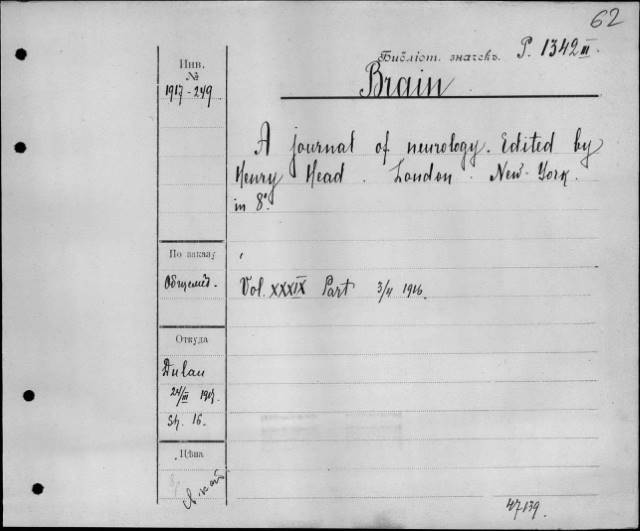 62
Библіот. значекъ. P. 1342 III.
Инв.
№
1917-249
Brain
A journal of neurology. Edited by
Henry Head. London. New-York.
in 8°.
По заказу
Общемед.
Vol. XXXIX Part 3/4 1916.
Откуда
Dulau
24/III 1917.
Sh. 16.
Цѣна
47139.